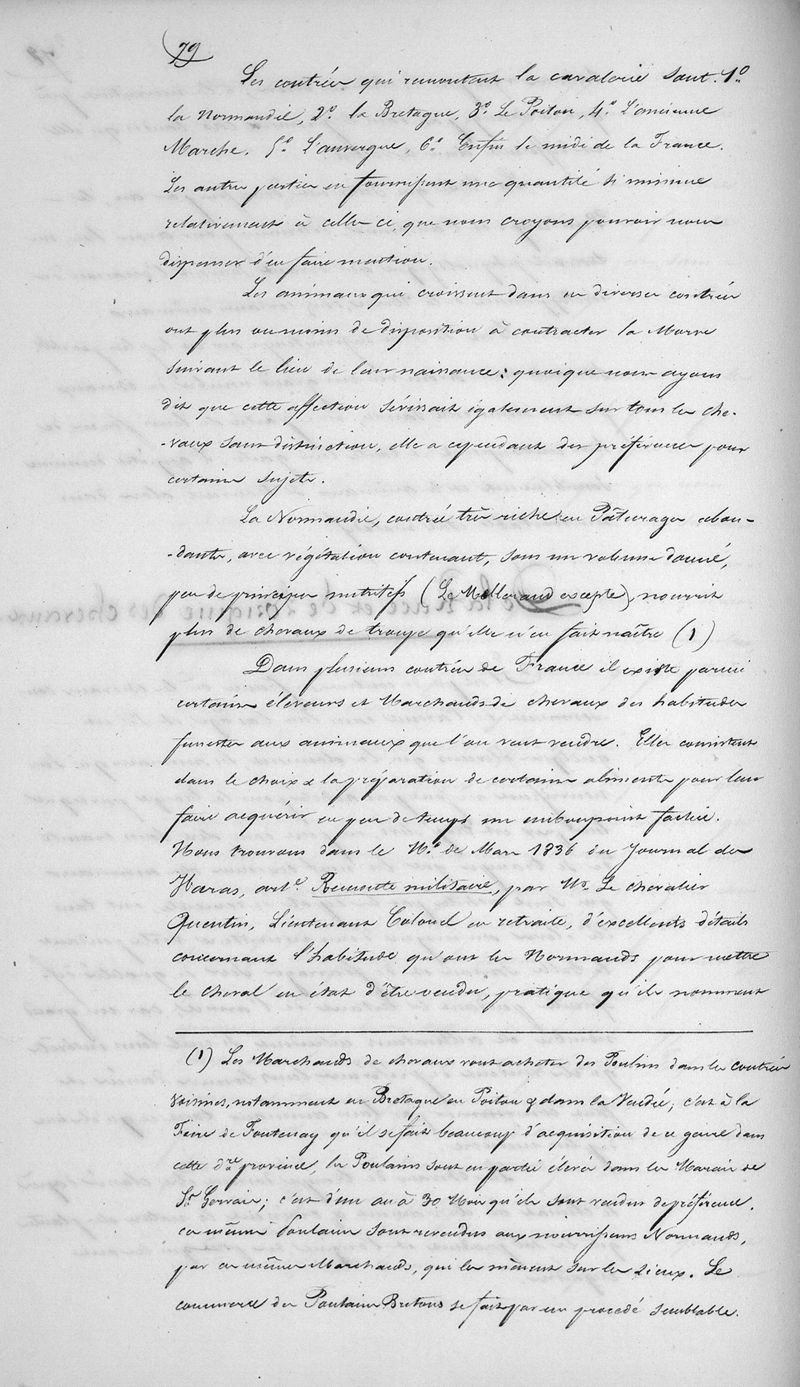 79
Les contrées qui remontent la cavalerie sont. 1.o
la Normandie, 2.o la Bretagne, 3.o Le Poitou, 4.o L'ancienne
Marche. 5.o L'auvergne, 6.o Enfin le midi de la France.
Les autres parties en fournissent une quantité si minime
relativement à celles-ci, que nous croyons pouvoir nous
dispenser d'en faire mention.
Les animaux qui croissent dans ces diverses contrées
ont plus ou moins de disposition à contracter la Morve
suivant le lieu de leur naissance; quoique nous ayons
dit que cette affection sévissait également sur tous les che-
-vaux sans distinction, elle a cependant des préférences pour
certains sujets.
La Normandie, contrée très riche en Pâturages abon-
-dants, avec végétation contenant, sous un volume donné,
peu de principes nutritifs (Le Mellerand excepté), nourrit
plus de chevaux de troupe qu'elle n'en fait naître (1)
Dans plusieurs contrées de France il existe parmi
certains éleveurs et Marchands de chevaux des habitudes
funestes aux animaux que l'on veut vendre. Elles consistent
dans le choix & la préparation de certains aliments pour leur
faire acquérir en peu de temps un embonpoint factice.
Nous trouvons dans le N.o de Mars 1836 du Journal des
Haras, art.e Remonte militaire, par M. Le chevalier
Quentin, Lieutenant Colonel en retraite, d'excellents détails
concernant l'habitude qu'ont les Normands pour mettre
le cheval en état d'être vendu, pratique qu'ils nomment
(1) Les Marchands de chevaux vont acheter des Poulins dans les contrées
voisines, notamment en Bretagne en Poitou & dans la Vendée; c'est à la
Foire de Fontenay qu'il se fait beaucoup d'acquisition de ce genre dans
cette d.re province, les Poulains sont en partie élevés dans les Marais de
St. Gervais; c'est d'un an à 30 Mois qu'ils sont vendus de préférence.
ces mêmes Poulains sont revendus aux nourrisseurs Normands,
par ces mêmes Marchands, qui les mènent sur les Lieux. Le
commerce des Poulains Bretons se fait par un procédé semblable.